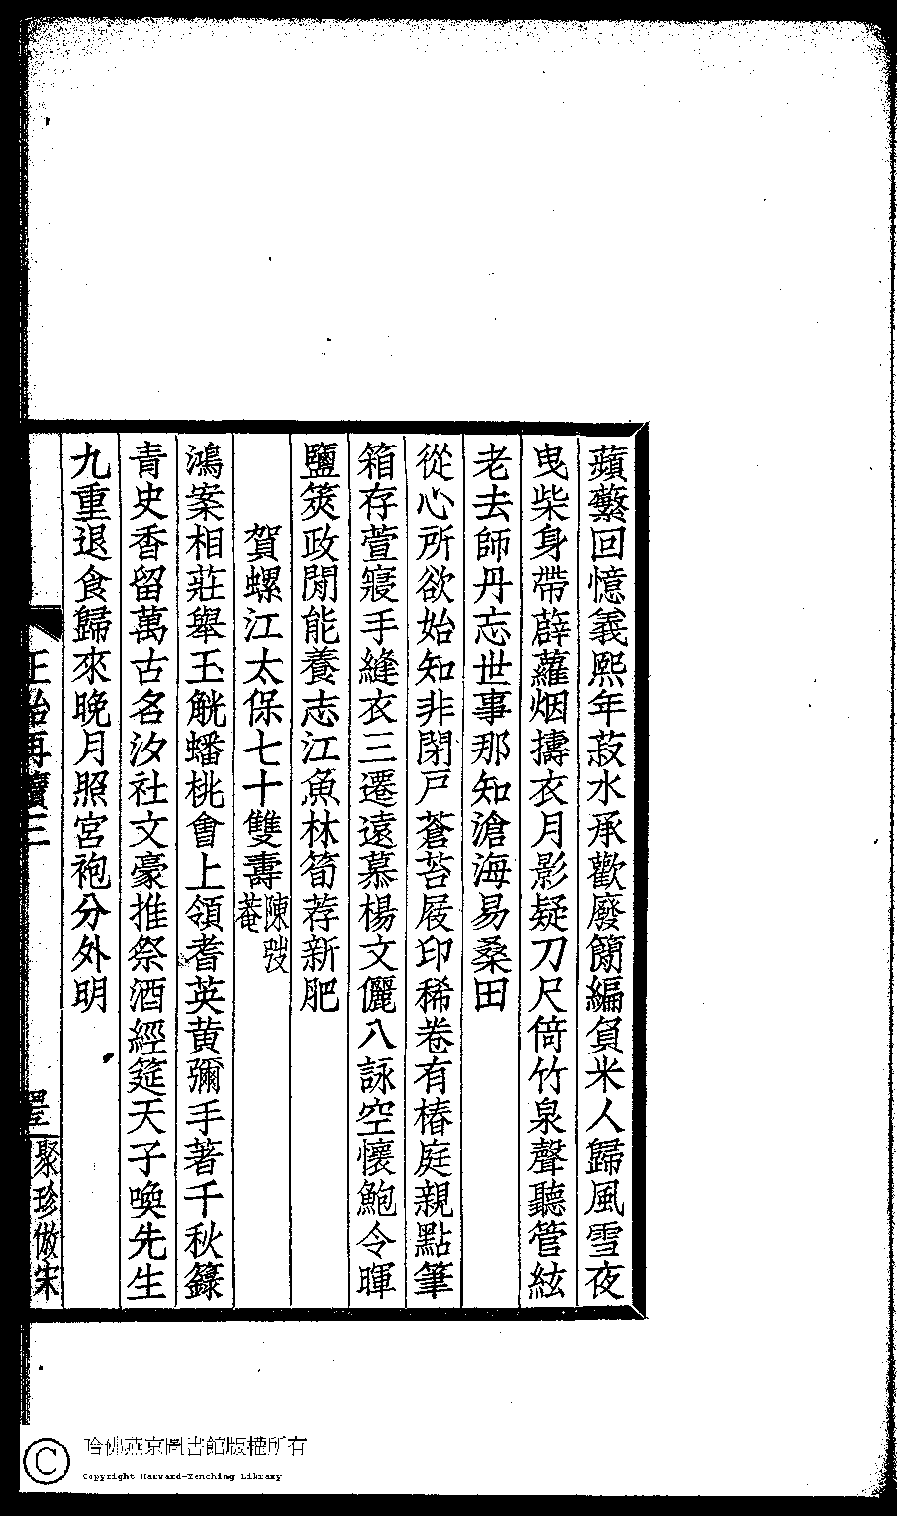 蘋蘩回憶義熙年菽水承歡廢簡編負米人歸風雪夜
曳柴身帶薜蘿烟擣衣月影疑刀尺倚竹泉聲聽管絃
老去師丹忘世事那知滄海易桑田
從心所欲始知非閉戸蒼苔屐印稀卷有椿庭親點筆
箱存萱寢手縫衣三遷遠慕楊文儷八詠空懷鮑令暉
鹽筴政閒能養志江魚林筍荐新肥
賀螺江太保七十雙壽陳弢菴
鴻案相莊舉玉觥蟠桃會上領耆英黄彌手著千秋籙
青史香留萬古名汐社文豪推祭酒經筵天子喚先生
九重退食歸來晚月照宮袍分外明
正始再續三
聚珍倣宋
哈佛燕京圖書館版權所有
Copyright Harvard-Yenching Library